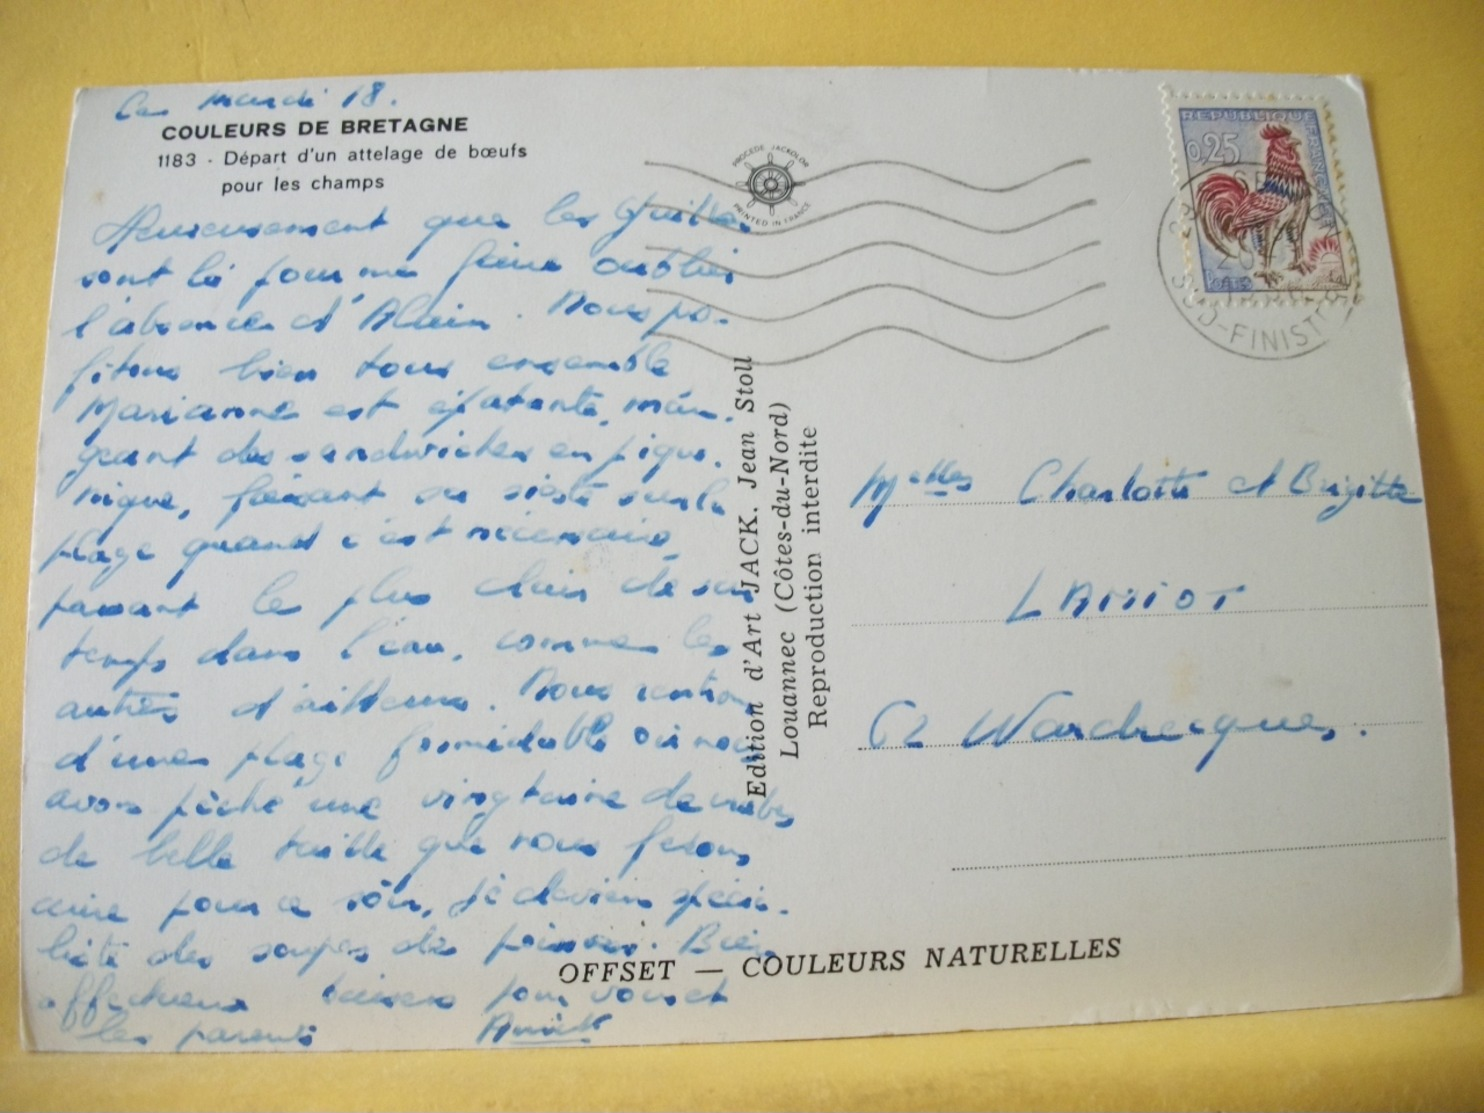 Ce mardi 18.
COULEURS DE BRETAGNE
1183 - Départ d'un attelage de bœufs
pour les champs
Heureusement que les
sont là pour me faire oublier
l'absence d'Alain. Nous pro-
fitons bien tous ensemble
Marianne est épatante, man-
geant des sandwiches en pique-
nique, faisant sa sieste sur la
plage quand c'est nécessaire,
passant le plus clair de son
temps dans l'eau, comme les
autres d'ailleurs. Nous rentrons
d'une plage formidable où nous
avons pêché une vingtaine de crabes
de belle taille que nous ferons
cuire pour ce soir, je deviens spécia-
liste des soupes de poisson. Bien
affectueux baisers pour vous et
les parents Annick
PROCEDE JACKOLOR
PRINTED IN FRANCE
REPUBLIQUE FRANCAISE
0,25
POSTES
29
S
SUD-FINISTERE
Edition d'Art JACK. Jean Stoll
Louannec (Côtes-du-Nord)
Reproduction interdite
Melles Charlotte et Brigitte
LAMIOT
62 Wardrecques.
OFFSET — COULEURS NATURELLES